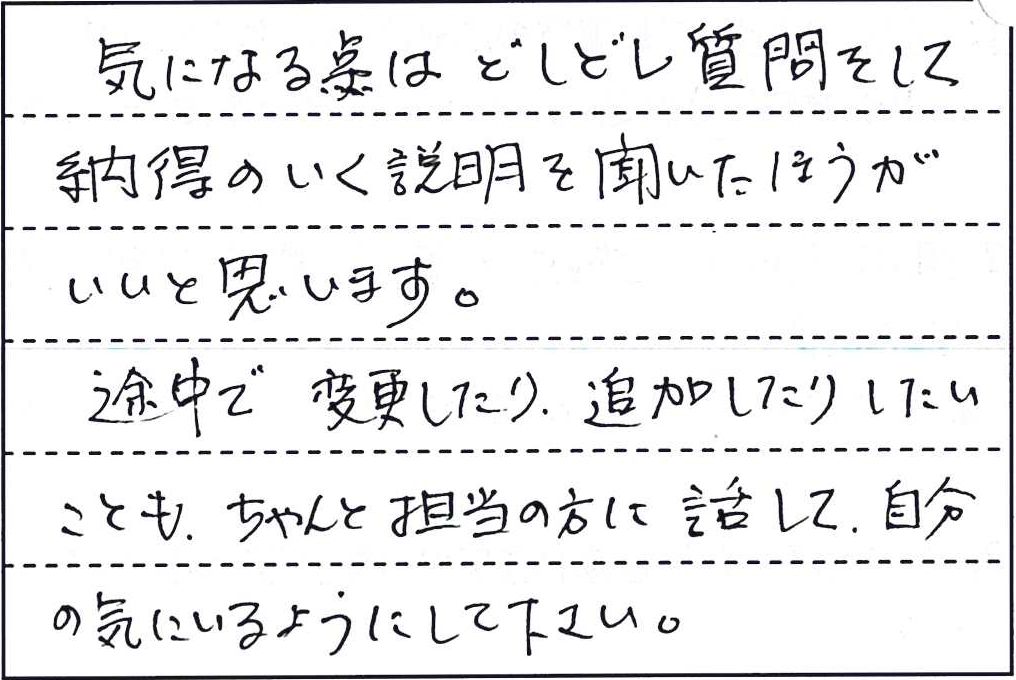 気になる点は どしどし質問をして
納得のいく説明を聞いたほうが
いいと思います。
途中で 変更したり、追加したりしたい
ことも、ちゃんと担当の方に 話して、自分
の気にいるようにして下さい。